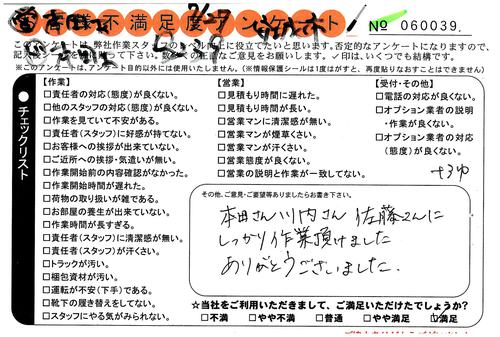 お客様不満足度アンケート
№ 060039
このアンケートは、弊社作業スタッフのレベル向上に役立てたいと思います。否定的なアンケートになりますので、
※このアンケートは、アンケート目的以外には使用いたしません。(※情報保護シールは1度はがすと、再度貼りなおすことはできません)
チェックリスト
【作業】
□責任者の対応(態度)が良くない。
□他のスタッフの対応(態度)が良くない。
□作業を見ていて不安がある。
□責任者(スタッフ)に好感が持てない。
□お客様への挨拶が出来ていない。
□ご近所への挨拶・気遣いが無い。
□作業開始前の内容確認がなかった。
□作業開始時間が遅れた。
□荷物の取り扱いが雑である。
□お部屋の養生が出来ていない。
□作業時間が長すぎる。
□責任者(スタッフ)に清潔感が無い。
□責任者(スタッフ)が汗くさい。
□トラックが汚い。
□梱包資材が汚い。
□運転が不安(下手)である。
□靴下の履き替えをしてない。
□スタッフにやる気がみられない。
【営業】
□見積もり時間に遅れた。
□見積もり時間が長い。
□営業マンに清潔感が無い。
□営業マンが煙草くさい。
□営業マンが汗くさい。
□営業態度が良くない。
□営業の説明と作業が一致してない。
【受付・その他】
□電話の対応が良くない。
□オプション業者の説明
・作業が良くない。
□オプション業者の対応
(態度)が良くない。
その他、ご意見・ご要望等ありましたらお書き下さい。
本田さん川内さん 佐藤さんに
しっかり作業頂けました
ありがとうございました。
☆当社をご利用いただきまして、ご満足いただけたでしょうか?
□不満 □やや不満 □普通 □やや満足 □満足